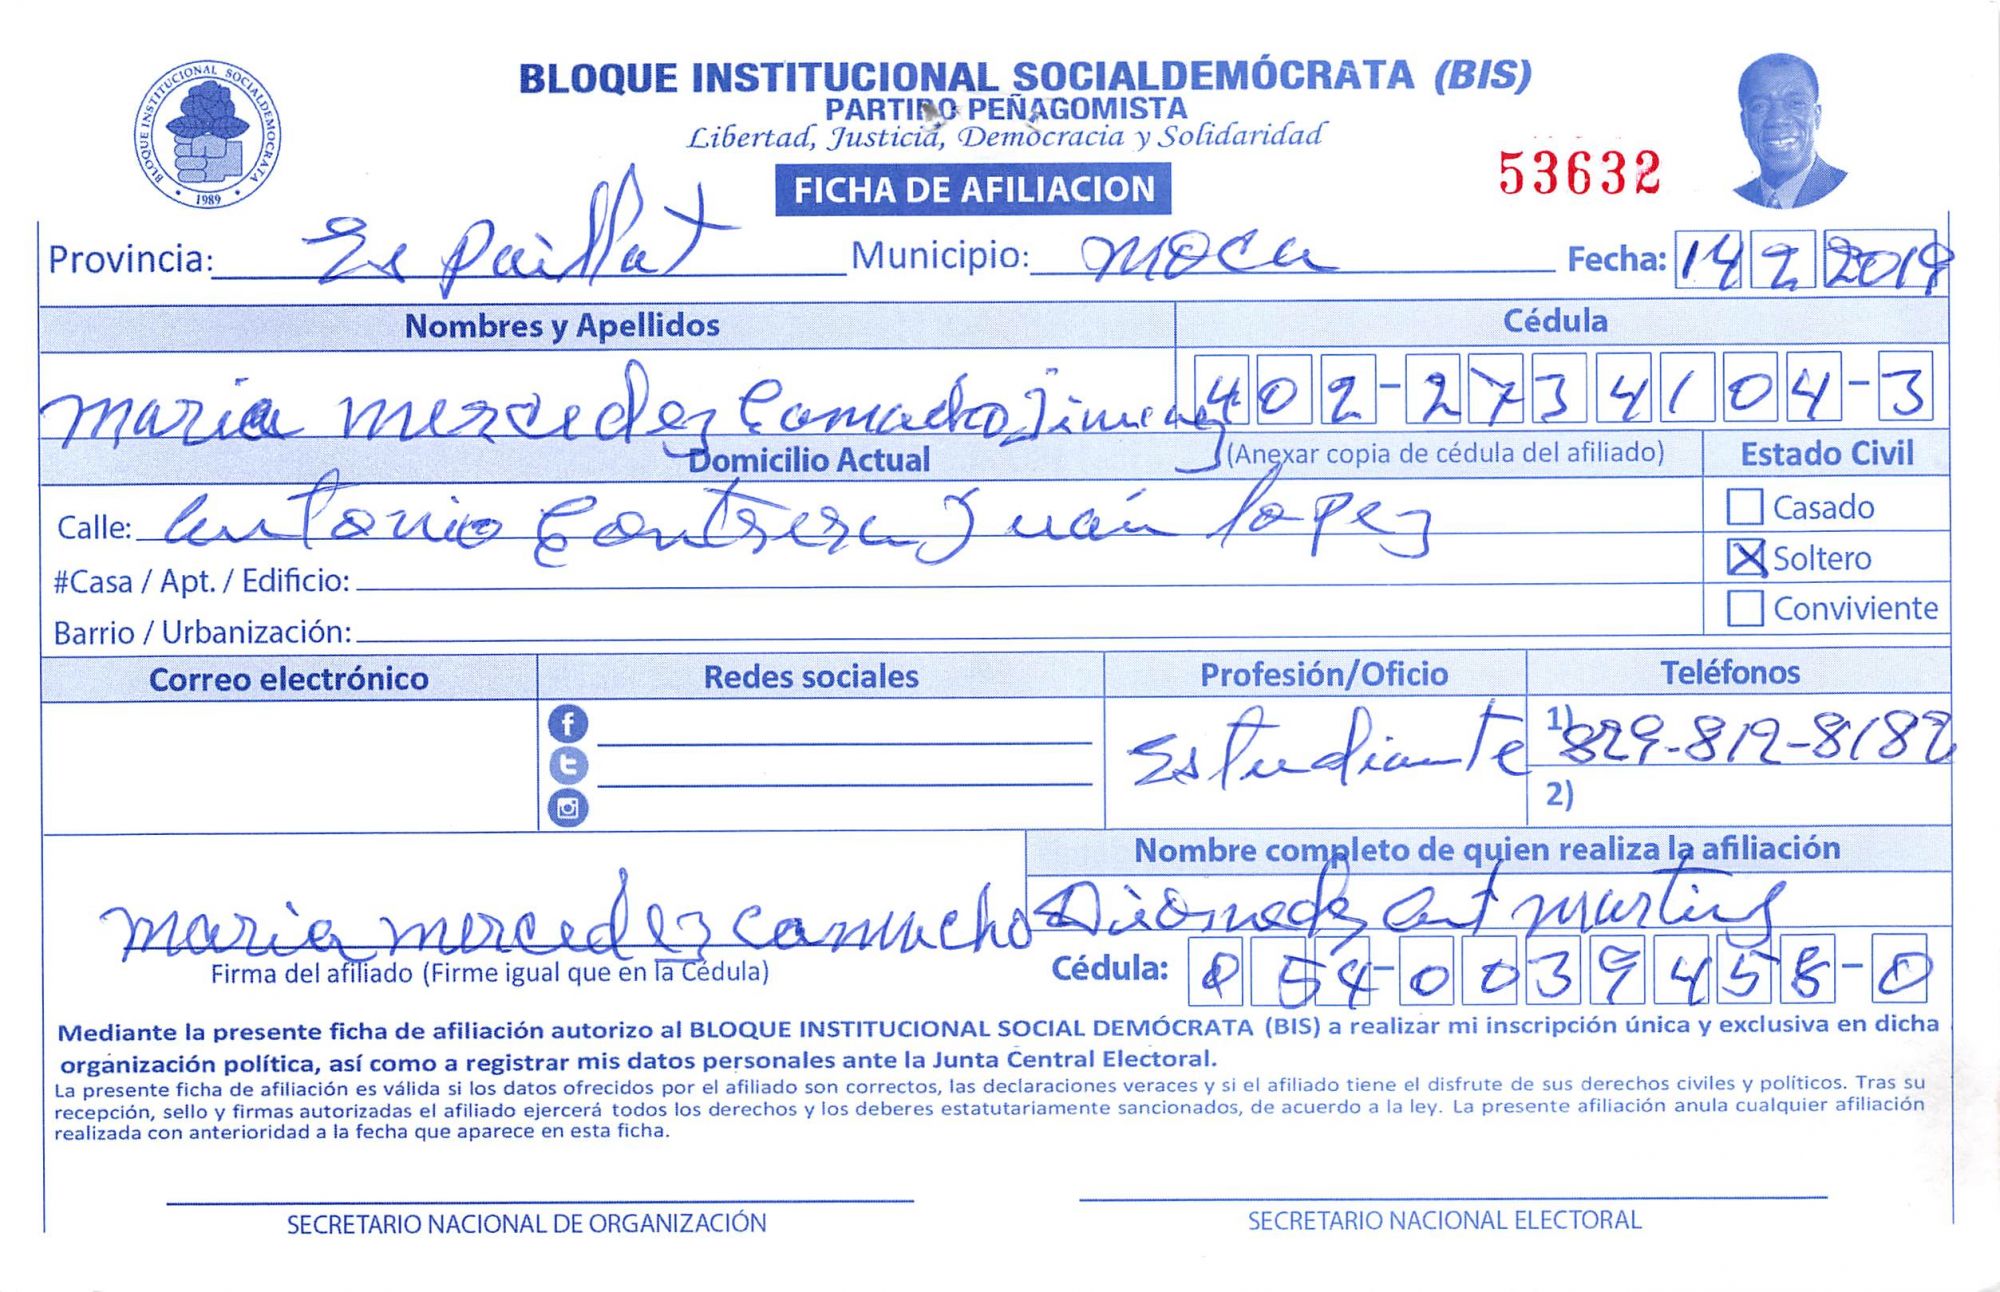 BLOQUE INSTITUCIONAL SOCIALDEMOCRATA
1989
BLOQUE INSTITUCIONAL SOCIALDEMÓCRATA (BIS)
PARTIDO PEÑAGOMISTA
Libertad, Justicia, Democracia y Solidaridad
FICHA DE AFILIACION
53632
Provincia: Espaillat Municipio: moca Fecha: 14 2 2019
Nombres y Apellidos Cédula
maria mercedez Camacho Jimenez 402-2734104-3
Domicilio Actual (Anexar copia de cédula del afiliado) Estado Civil
Calle: antonio Contrera Juan lopez
Casado
Soltero
Conviviente
#Casa / Apt. / Edificio:
Barrio / Urbanización:
Correo electrónico Redes sociales Profesión/Oficio Teléfonos
Estudiante 1) 829-812-8182
2)
Nombre completo de quien realiza la afiliación
maria mercedez camacho Diomedes ant martinez
Firma del afiliado (Firme igual que en la Cédula) Cédula: 054-0039458-0
Mediante la presente ficha de afiliación autorizo al BLOQUE INSTITUCIONAL SOCIAL DEMÓCRATA (BIS) a realizar mi inscripción única y exclusiva en dicha
organización política, así como a registrar mis datos personales ante la Junta Central Electoral.
La presente ficha de afiliación es válida si los datos ofrecidos por el afiliado son correctos, las declaraciones veraces y si el afiliado tiene el disfrute de sus derechos civiles y políticos. Tras su
recepción, sello y firmas autorizadas el afiliado ejercerá todos los derechos y los deberes estatutariamente sancionados, de acuerdo a la ley. La presente afiliación anula cualquier afiliación
realizada con anterioridad a la fecha que aparece en esta ficha.
SECRETARIO NACIONAL DE ORGANIZACIÓN SECRETARIO NACIONAL ELECTORAL